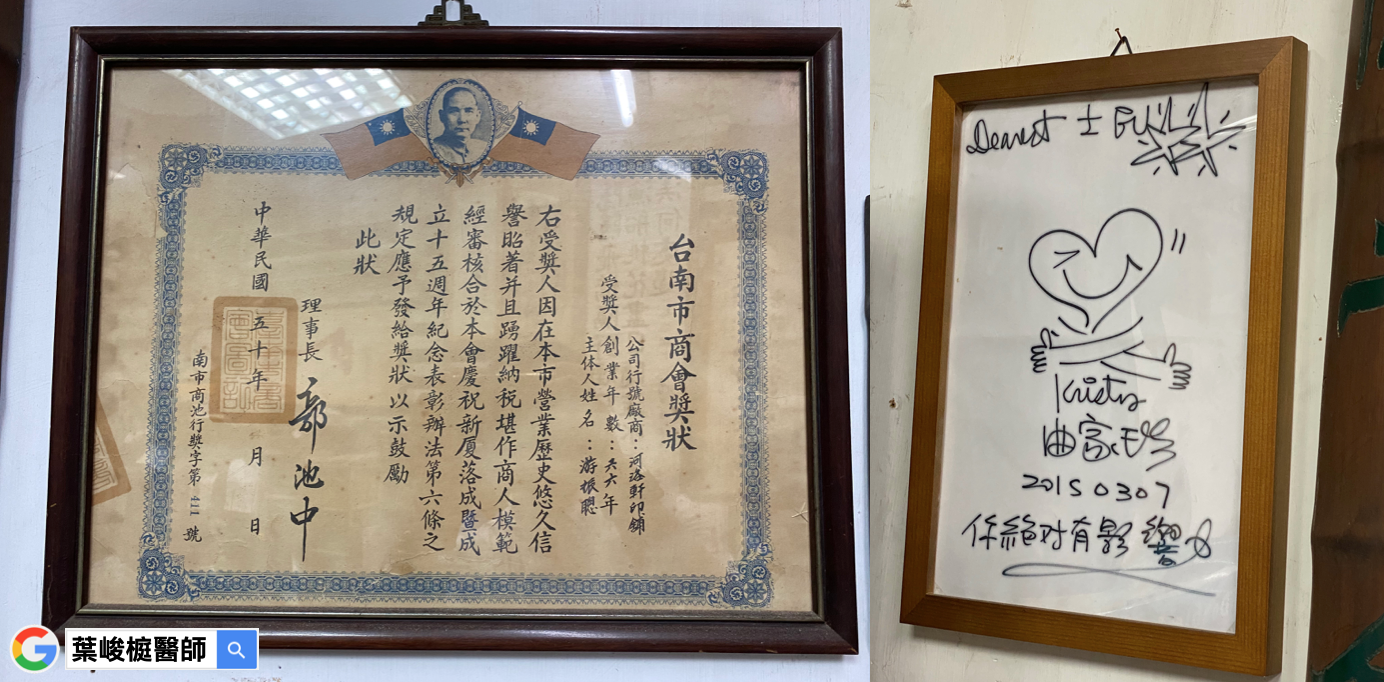 台南市商會獎狀
公司行號廠商：河洛軒印鋪
受獎人創業年數：共六年
主体人姓名：游振聰
右受獎人因在本市營業歷史悠久信
譽昭著并且踴躍納稅堪作商人模範
經審核合於本會慶祝新厦落成暨成
立十五週年紀念表彰辦法第六條之
規定應予發給獎狀以示鼓勵
此狀
理事長 郭池中
中華民國五十年 月 日
南市商池行獎字第411號
Dearest 士
Kristy
曲家瑞
20150307
你絕对有影響力
葉峻榳醫師